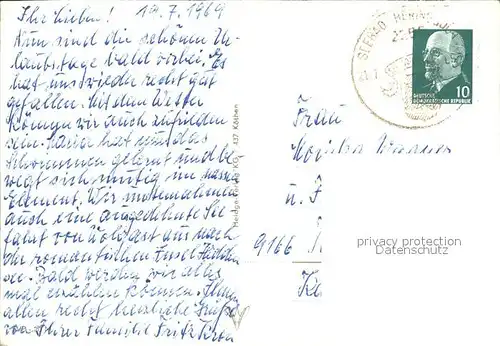 Ihr Lieben! 19.7.1969
Nun sind die schönen Ur-
laubstage bald vorbei. Es
hat uns wieder recht gut
gefallen. Mit dem Wetter
können wir auch zufrieden
sein. Maria hat nun das
Schwimmen gelernt und be-
wegt sich mutig im nassen
Element. Wir unternahmen
auch eine ausgedehnte See-
fahrt von Wolgast aus nach
der romantischen Insel Hidden-
see. Bald werden wir alles
mal erzählen können.
allen recht herzliche Grüße
von Ihrer Familie Fritz
437 Köthen
SEEBAD HERINGSDORF
DEUTSCHE
DEMOKRATISCHE REPUBLIK
10
Frau
u.
9166
privacy protection
Datenschutz